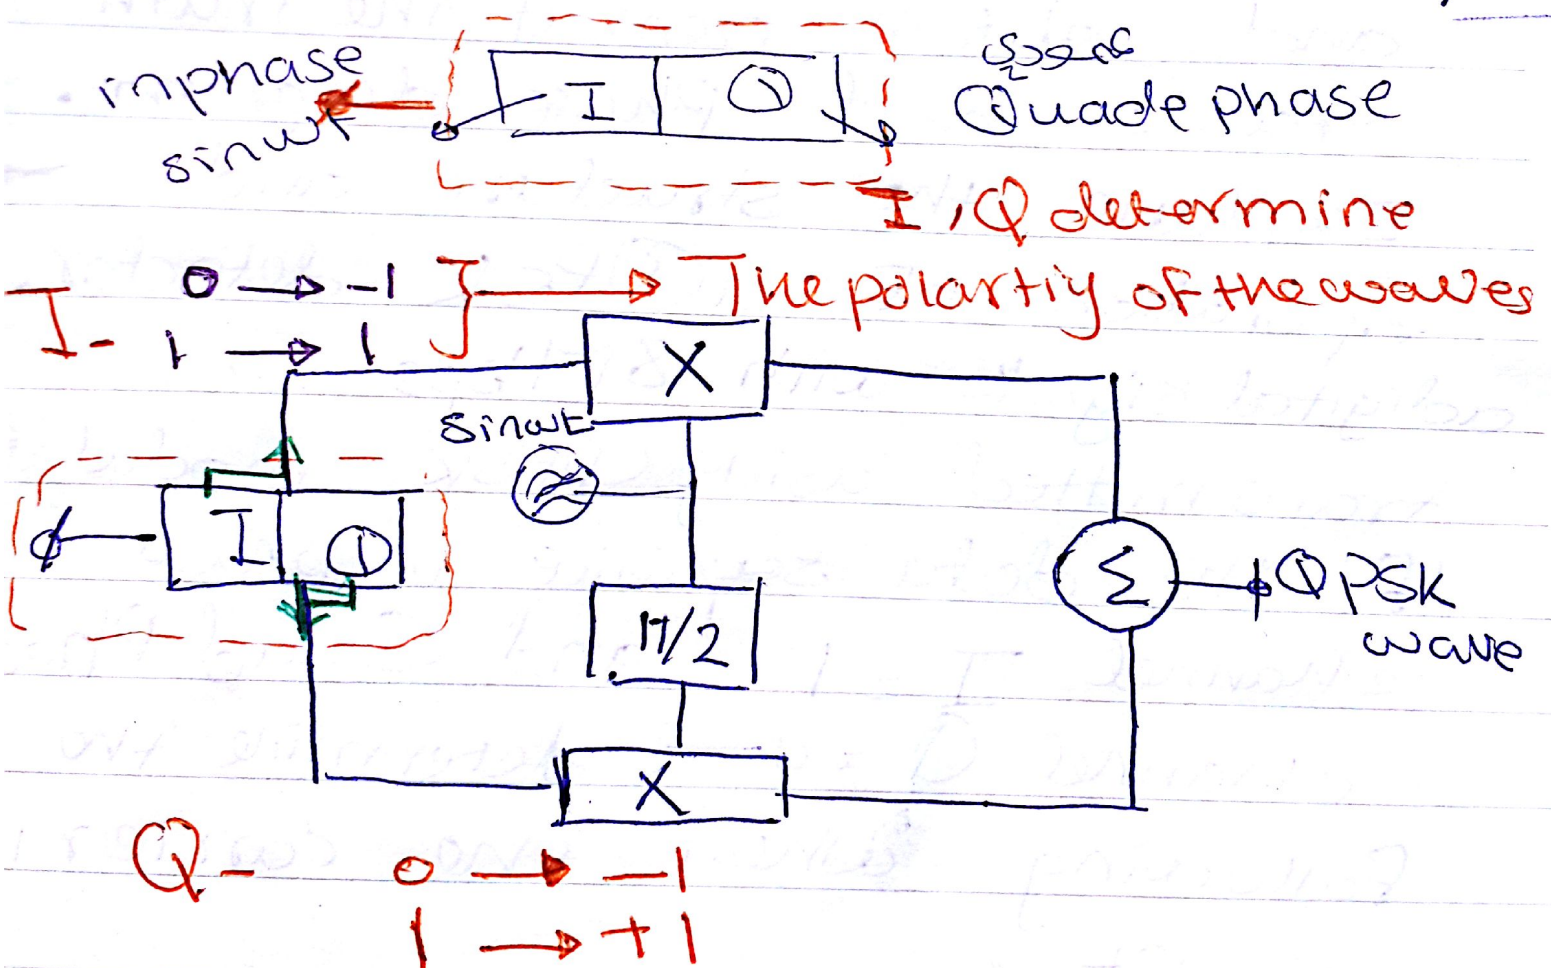 inphase
sinwt
I Q
Quade phase
I, Q determine
The polartiy of the waves
I- 0 → -1
1 → 1
X
sinwt
I Q
Σ
QPSK
wave
π/2
X
Q- 0 → -1
1 → +1